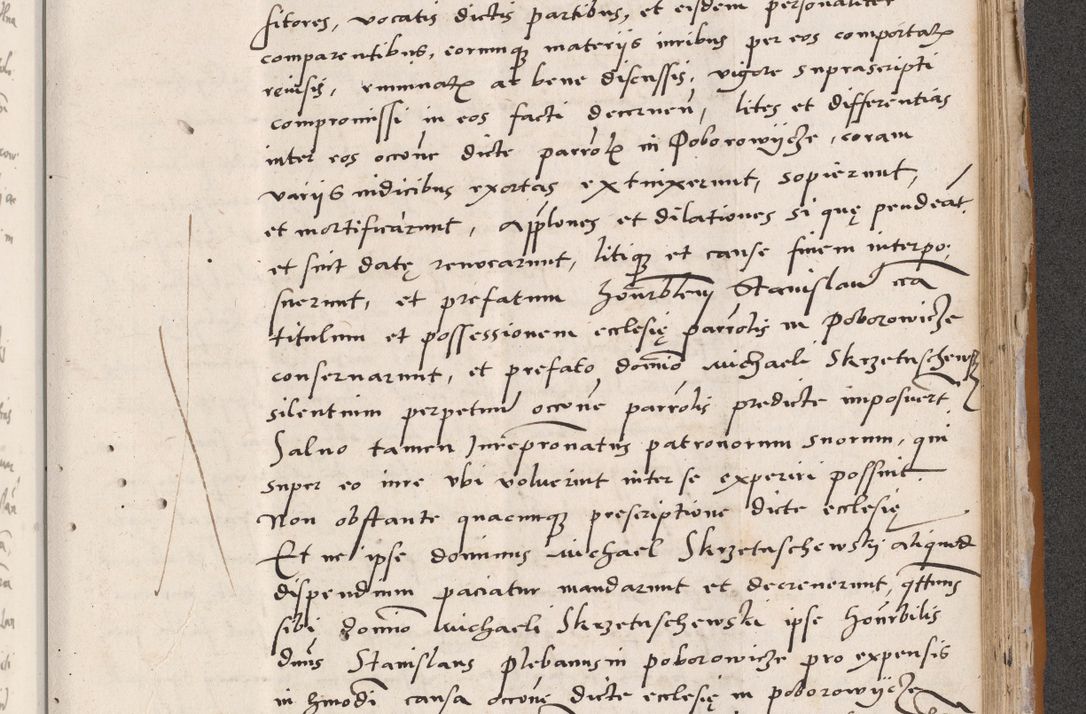 sitores, vocatis dictis partibus, et eisdem personaliter
comparentibus, eorumque materiis iuribus per eos comportatꝝ
reuisis, ruminatꝝ ac bene discussis, vigore suprascripti
compromissi in eos facti decernen̄, lites et differentias
inter eos occōne dicte parrōlꝫ in Poborowijcze, coram
variis iudicibus exortas extinxerunt, sopierunt,
et mortificārunt, applōnes et dilationes si quę pendeāt
et sint datę reuocarunt, litique et cause finem interpo-
suerunt, et prefatum honrōblem Stanislaum circa
titulum et possessionem ecclesię parrōlis in Poborowicze
conseruarunt, et prefato domīo Michaeli Skrzetuschewsꝃ
silentium perpetuū occōne parrōlis predicte imposuerūt
Saluo tamen Iurepatronatus patronorum suorum, qui
super eo iure vbi voluerint inter se experiri possint
Non obstante quacunque prescriptione dicte ecclesię
Et ne ipse dominus Michael Skrzetuschewski aliquod
dispendium paciatur mandarunt et decreuerunt, q̄ttenus
sibi domīo Michaeli Skrzetuschewski ipse honōrbilis
dn̄us Stanislaus plebanus in poborowicze pro expensis
in hmōdi causa occōne dicte ecclesię in poborowijcze